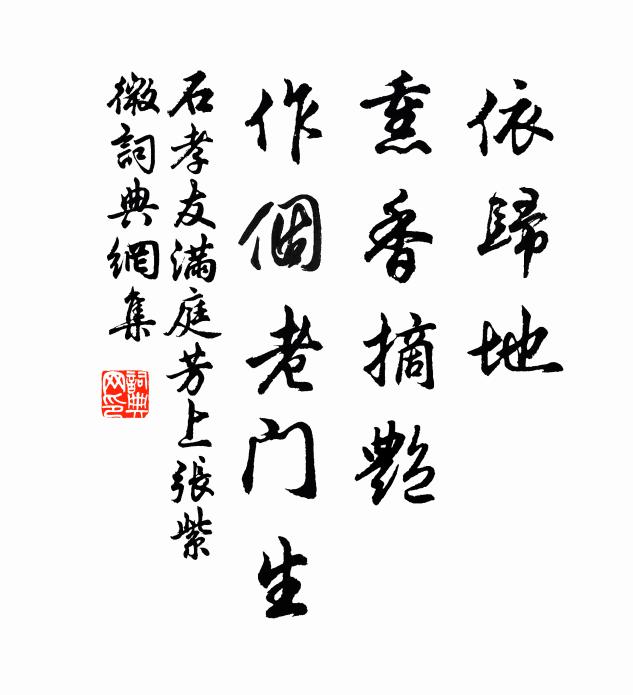 依歸地
熏香摘艷
作個老門生
石孝友滿庭芳上張紫
微詞典網集
詞典
网印